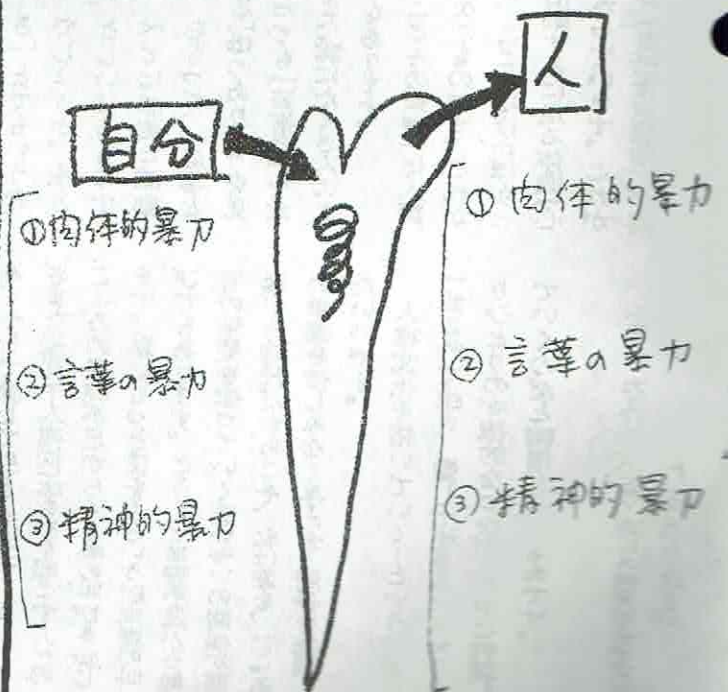 自分
①肉体的暴力
②言葉の暴力
③精神的暴力
人
①肉体的暴力
②言葉の暴力
③精神的暴力